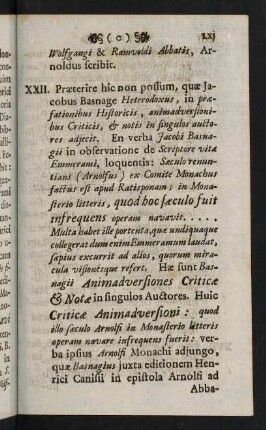 ( o ) lxj
Wolfgangi & Ramvoldi Abbatis, Ar-
noldus scribit.
XXII. Præterire hîc non possum, quæ Ja-
cobus Basnage Heterodoxus, in præ-
fationibus Historicis, animadversioni-
bus Criticis, & notis in singulos aucto-
res adjecit. En verba Jacobi Basna-
gii in observatione de Scriptore vitæ
Emmerami, loquentis: Sæculo renun-
tians (Arnolfus) ex Comite Monachus
factus est apud Ratisponam: in Mona-
sterio litteris, quod hoc sæculo fuit
infrequens operam navavit. . . . .
Multa habet ille portenta, quæ undiquaque
collegerat dum enim Emmeramum laudat,
sæpius excurrit ad alios, quorum mira-
cula visionesque refert. Hæ sunt Bas-
nagii Animadversiones Criticæ
& Notæ in singulos Auctores. Huic
Criticæ Animadversioni: quod
illo sæculo Arnolfi in Monasterio litteris
operam navare infrequens fuerit: ver-
ba ipsius Arnolfi Monachi adjungo,
quæ Basnagius juxta editionem Hen-
rici Canisii in epistola Arnolfi ad
Abba-